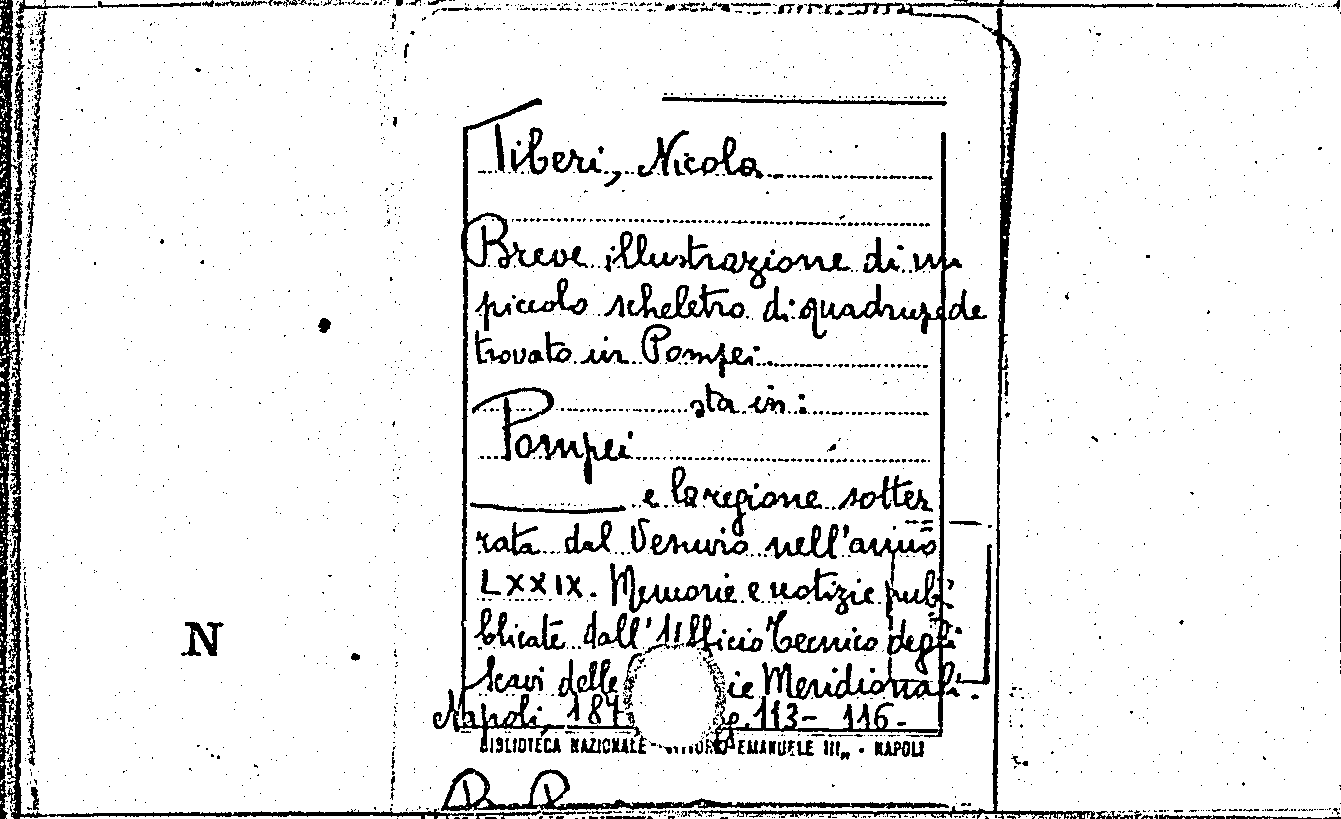 Tiberi, Nicola
Breve illustrazione di un
piccolo scheletro di quadrupede
trovato in Pompei.
sta in:
Pompei
e la regione sotter
rata dal Vesuvio nell'anno
LXXIX. Memorie e notizie pub
blicate dall'Ufficio Tecnico degli
Scavi delle Meridionali.
Napoli, 113-116-
BIBLIOTECA NAZIONALE EMANUELE III„ - NAPOLI
N